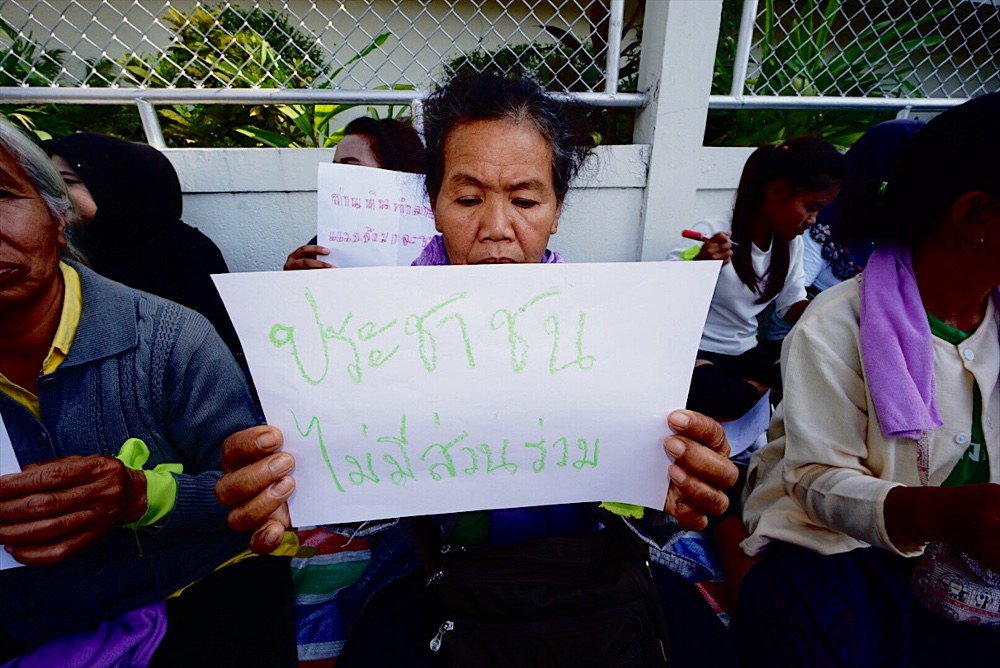 ประชาชน
ไม่มีส่วนร่วม